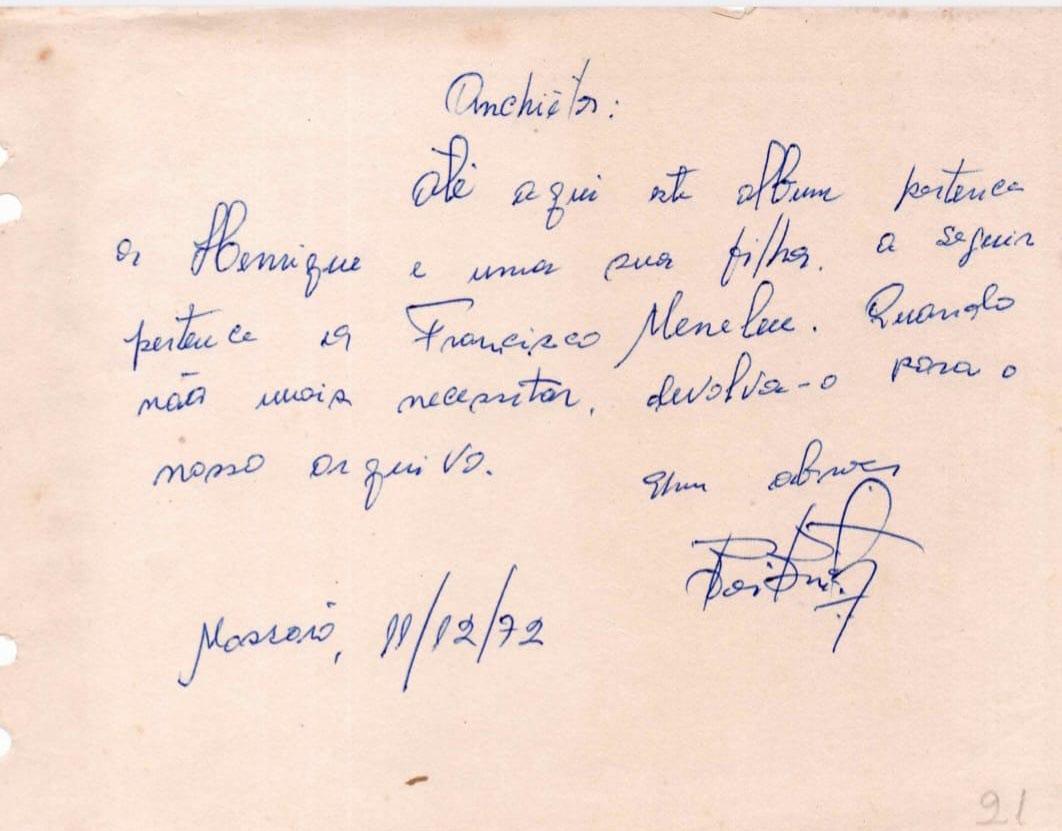 Anchieta:
Até aqui este album pertence
a Henrique e uma sua filha. A seguir
pertence a Francisco Menelau. Quando
não mais necessitar, devolva-o para o
nosso arquivo.
Um abraço
Mossoró, 11/12/72
91